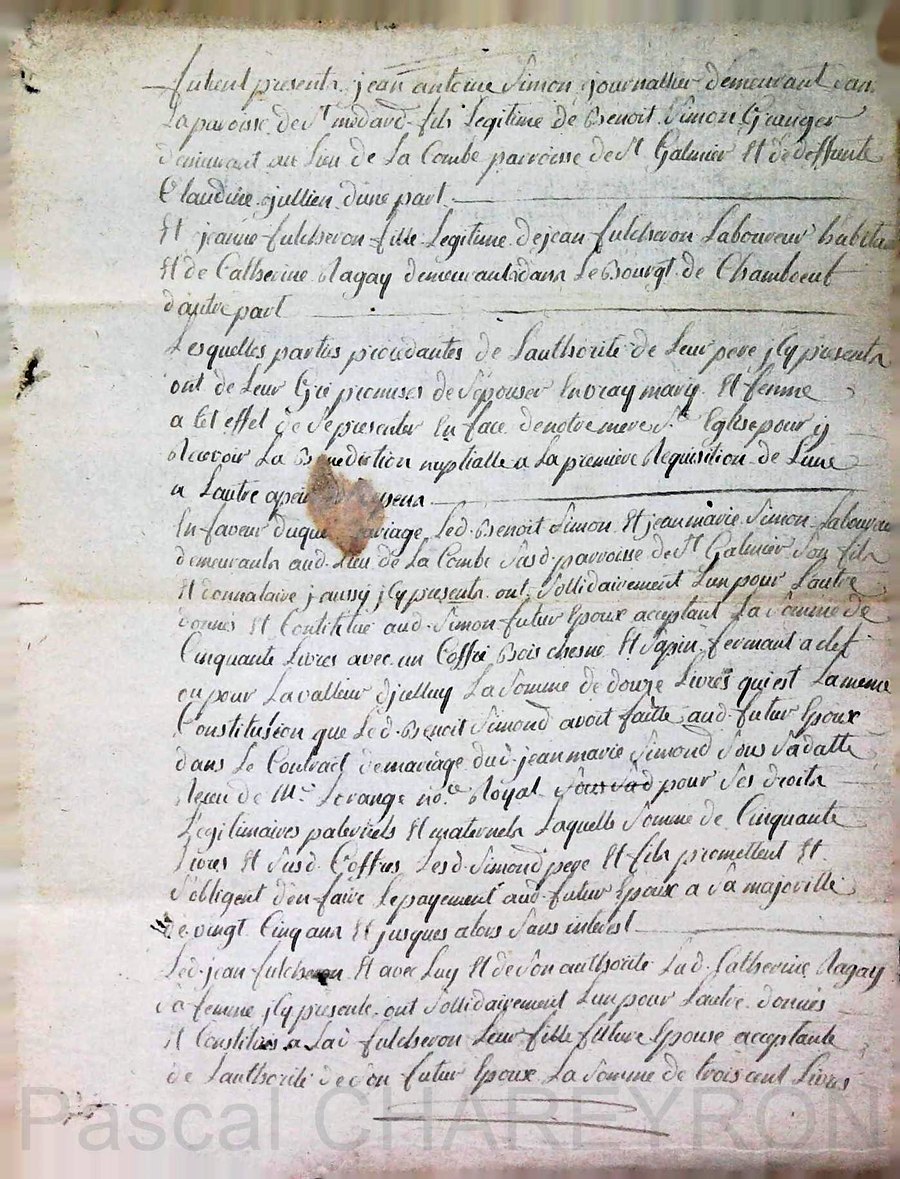 furent presents jean antoine Simon journallier demeurant dan
La paroisse de St medard fils Legitime de Benoit Simon Granger
demeurant au Lieu de La Combe parroisse de St Galmier Et de deffunte
Claudine jullien d'une part
Et jeanne fulcheron fille Legitime de jean fulcheron Laboureur habitan
Et de Catherine Ragay demeurants dans Le Bourgt de Chamboeut
d'autre part
Lesquelles parties procedantes de Lauthorité de Leur pere jcy presents
ont de Leur Gré promises de S'epouser En vray mary Et femme
a Cet effet de Se presenter En face de notre mere Ste Eglise pour y
Recevoir La Benediction nuptialle a La premiere Requisition de Lune
a Lautre
En faveur duquel mariage Led. Benoit Simon Et jean marie Simon Laboureu
demeurants aud. Lieu de La Combe Susd. parroisse de St Galmier Son fils
Et donnataire jcy presents ont Sollidairement Lun pour Lautre
donnés Et Constitué aud. Simon futur Epoux acceptant La Somme de
Cinquante Livres avec un Coffre Bois chesne Et Sapin fermant a clef
ou pour La valleur djcelluy La Somme de douze Livres qui est La meme
Constitution que Led. Benoit Simond avoit faitte aud. futur Epoux
dans Le Contract de mariage dud. jean marie Simond Sous Sa datte
Receu de Me Lorange nore Royal pour Ses droits
Legitimaires paternels Et maternels Laquelle Somme de Cinquante
Livres Et Susd. Coffres Lesd. Simond pere Et fils promettent Et
S'obligent d'en faire Le payement aud. futur Epoux a Sa majoritté
de vingt Cinq ans Et jusques alors Sans interest
Led. jean fulcheron Et avec Luy Et de Son authorité Lad. Catherine Ragay
Sa femme jcy presente ont Sollidairement Lun pour Lautre donnés
Et Constitués a Lad. fulcheron Leur fille future Epouse acceptante
de Lauthorité de Son futur Epoux La Somme de trois cent Livres
Pascal CHAREYRON